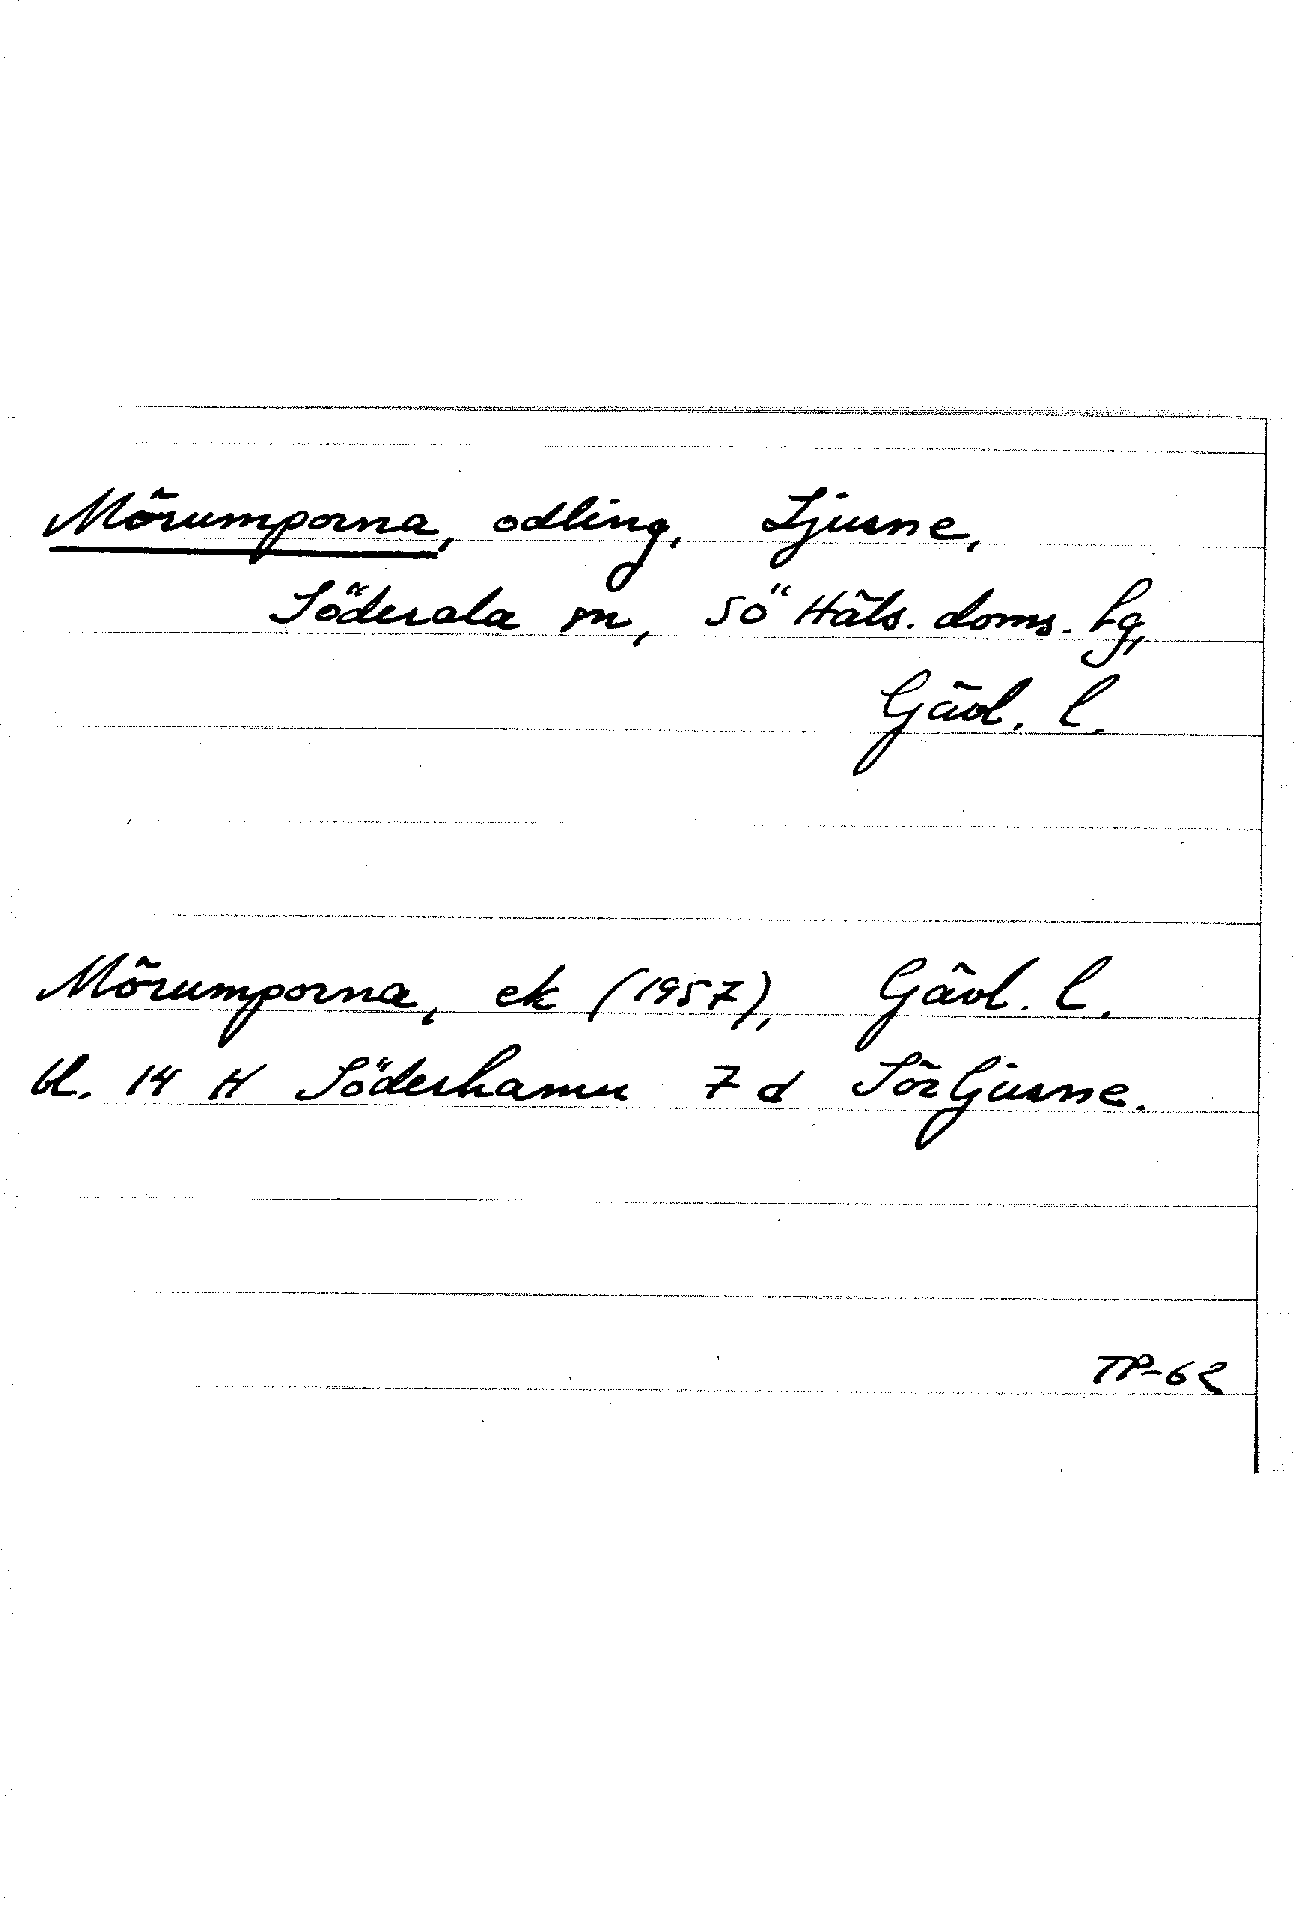 Mörumporna, odling, Ljusne,
Söderala sn, sö Häls. doms. lg,
Gävl. l.
Mörumporna, ek (1957), Gävl. l.
bl. 14 H Söderhamn 7 d Sörljusne.
TP-62